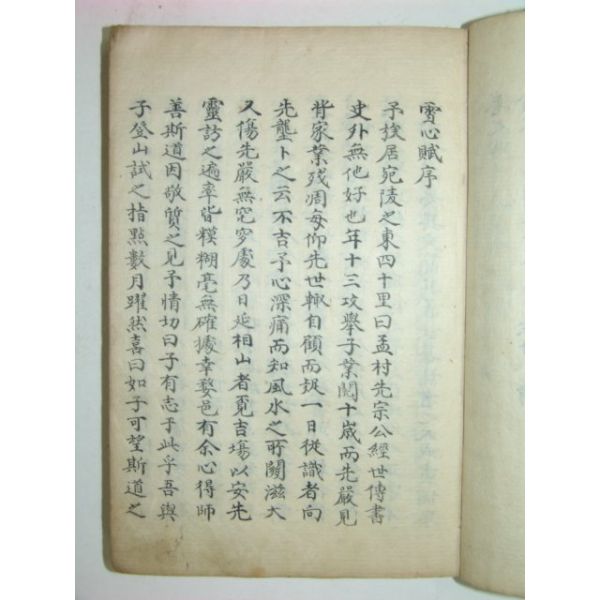 雪心賦序
予族居宛陵之東四十里曰孟村先宗公經世傳書
史外無他好也年十三攻舉子業閱十歲而先嚴見
背家業殘凋每仰先世輒自顧而 一日從識者向
先壟卜之云不吉予心深痛而知風水之所關滋大
又傷先嚴無窀穸處乃日延相山者覓吉場以安先
靈訪之遍率皆糢糊毫無確據幸婺邑有余心得師
善斯道因敬質之見予情切曰子有志于此乎吾與
子登山試之指點數月躍然喜曰如子可望斯道之